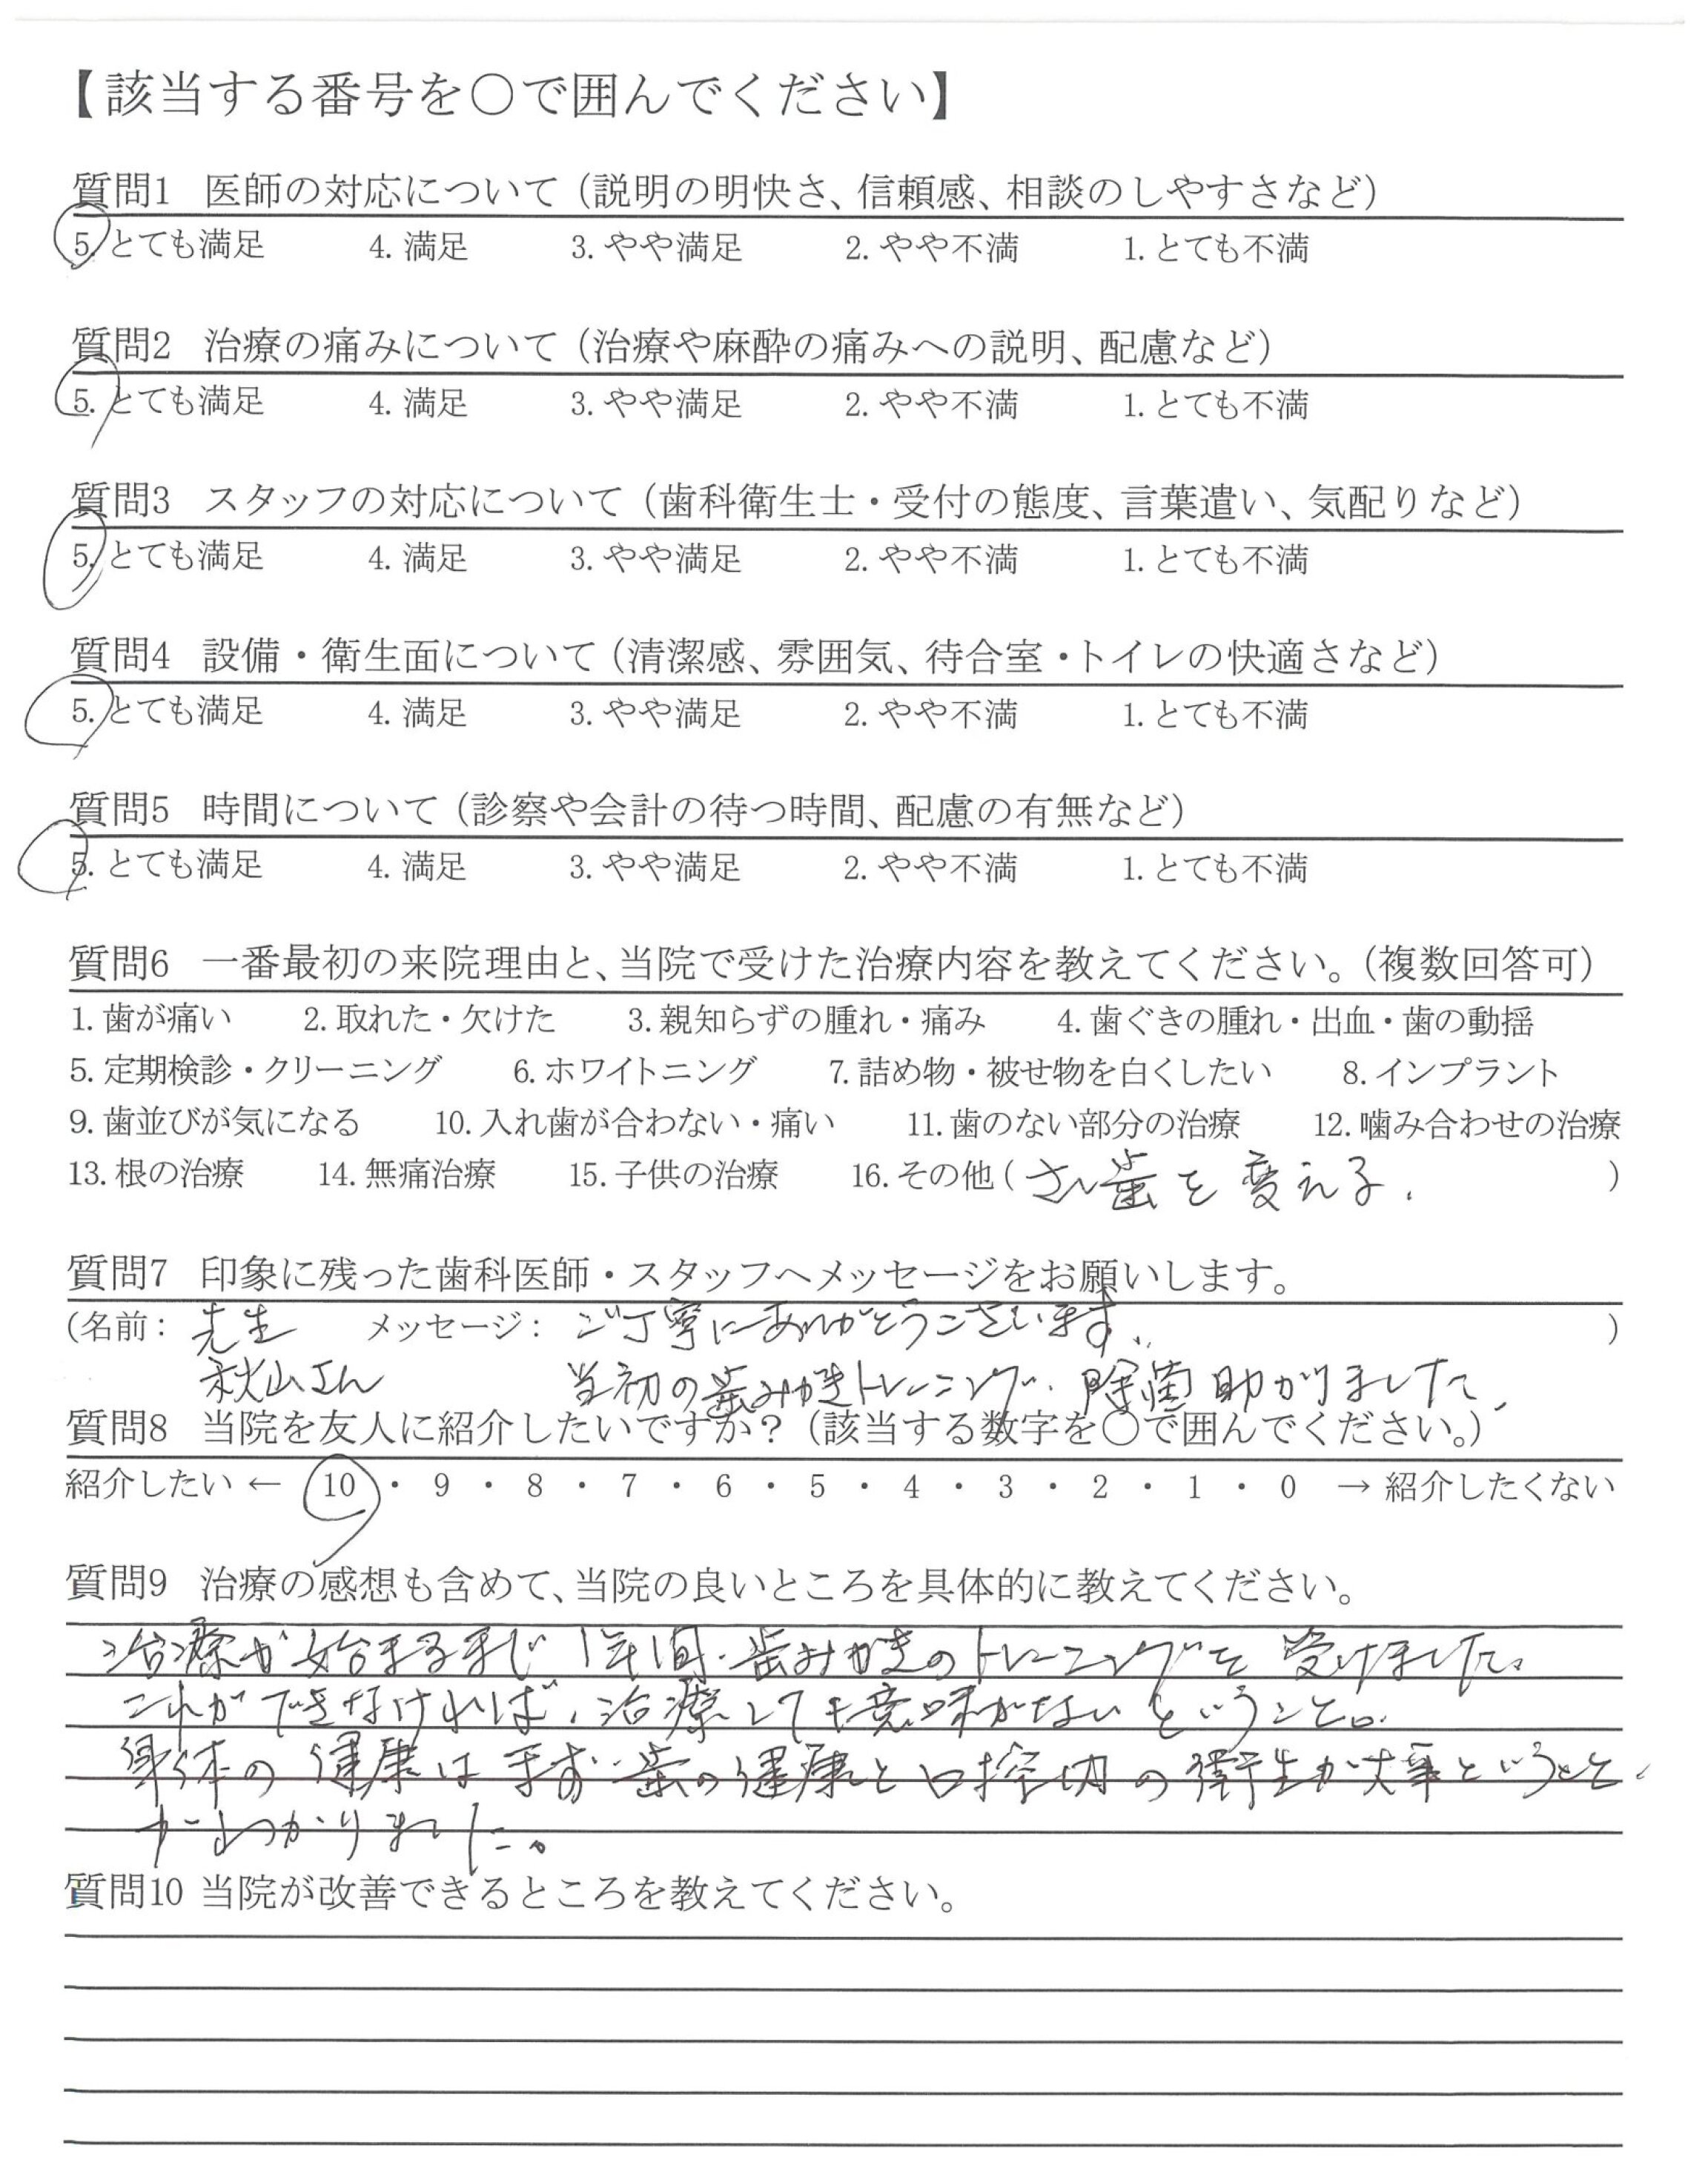 【該当する番号を○で囲んでください】
質問1 医師の対応について（説明の明快さ、信頼感、相談のしやすさなど）
5. とても満足 4. 満足 3. やや満足 2. やや不満 1. とても不満
質問2 治療の痛みについて（治療や麻酔の痛みへの説明、配慮など）
5. とても満足 4. 満足 3. やや満足 2. やや不満 1. とても不満
質問3 スタッフの対応について（歯科衛生士・受付の態度、言葉遣い、気配りなど）
5. とても満足 4. 満足 3. やや満足 2. やや不満 1. とても不満
質問4 設備・衛生面について（清潔感、雰囲気、待合室・トイレの快適さなど）
5. とても満足 4. 満足 3. やや満足 2. やや不満 1. とても不満
質問5 時間について（診察や会計の待つ時間、配慮の有無など）
5. とても満足 4. 満足 3. やや満足 2. やや不満 1. とても不満
質問6 一番最初の来院理由と、当院で受けた治療内容を教えてください。（複数回答可）
1. 歯が痛い 2. 取れた・欠けた 3. 親知らずの腫れ・痛み 4. 歯ぐきの腫れ・出血・歯の動揺
5. 定期検診・クリーニング 6. ホワイトニング 7. 詰め物・被せ物を白くしたい 8. インプラント
9. 歯並びが気になる 10. 入れ歯が合わない・痛い 11. 歯のない部分の治療 12. 噛み合わせの治療
13. 根の治療 14. 無痛治療 15. 子供の治療 16. その他（ さし歯を変える. ）
質問7 印象に残った歯科医師・スタッフへメッセージをお願いします。
（名前： 先生 メッセージ： ご丁寧にありがとうございます。 ）
秋山さん 当初の歯みがきトレーニング、除菌 助かりました。
質問8 当院を友人に紹介したいですか？（該当する数字を○で囲んでください。）
紹介したい ← 10 ・ 9 ・ 8 ・ 7 ・ 6 ・ 5 ・ 4 ・ 3 ・ 2 ・ 1 ・ 0 → 紹介したくない
質問9 治療の感想も含めて、当院の良いところを具体的に教えてください。
治療が始まるまで 1年間、歯みがきのトレーニングを 受けました。
これが できなければ、治療しても意味がない ということ。
身体の 健康は まず 歯の健康と 口控内の 衛生が大事ということ
がわかりました。
質問10 当院が改善できるところを教えてください。